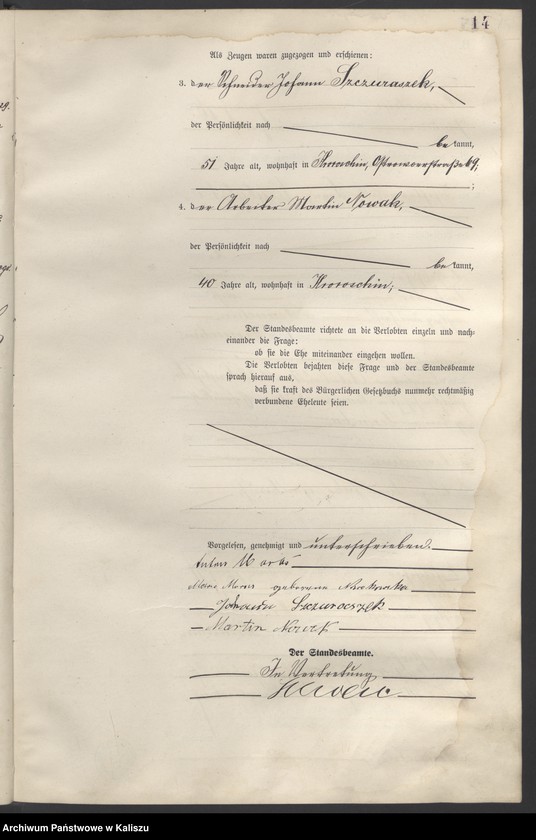 14
Als Zeugen waren zugezogen und erschienen:
3. der Schneider Johann Szczuraszek,
der Persönlichkeit nach
be kannt,
51 Jahre alt, wohnhaft in Krotoschin, Ostrowoerstraße 69;
;
4. der Arbeiter Martin Nowak,
der Persönlichkeit nach
be kannt,
40 Jahre alt, wohnhaft in Krotoschin;
Der Standesbeamte richtete an die Verlobten einzeln und nach-
einander die Frage:
ob sie die Ehe miteinander eingehen wollen.
Die Verlobten bejahten diese Frage und der Standesbeamte
sprach hierauf aus,
daß sie kraft des Bürgerlichen Gesetzbuchs nunmehr rechtmäßig
verbundene Eheleute seien.
Vorgelesen, genehmigt und unterschrieben.
geborene
Johann Szczuraszek
Martin Nowak
Der Standesbeamte.
In Vertretung
Archiwum Państwowe w Kaliszu